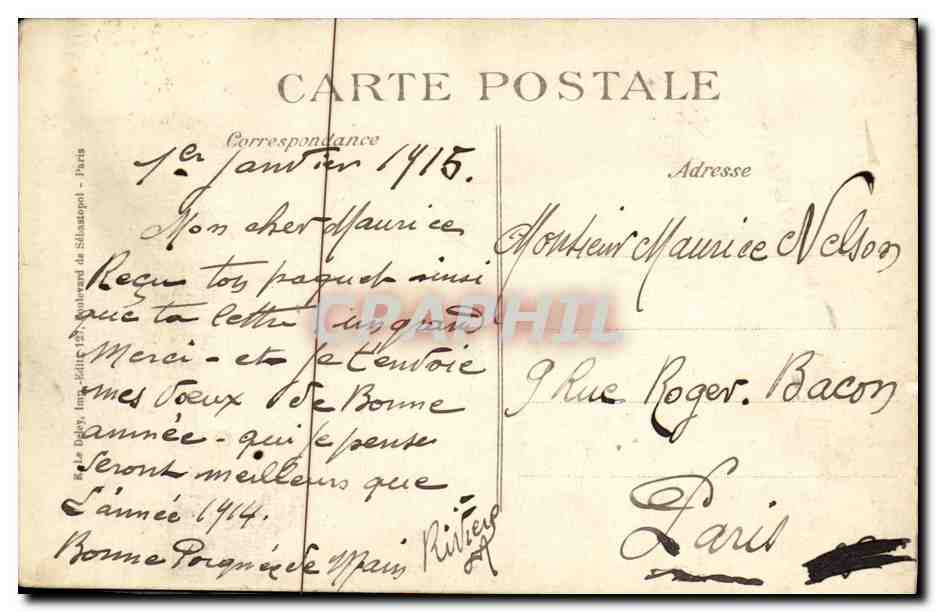 CARTE POSTALE
Correspondance
1er Janvier 1915.
Mon cher Maurice
Reçu ton paquet ainsi
que ta lettre un grand
Merci - et je t'envoie
mes vœux de Bonne
année - qui je pense
seront meilleurs que
L'année 1914.
Bonne Poignée de Main
Rivière
Adresse
Monsieur Maurice Nelson
9 Rue Roger. Bacon
Paris
E. Le Deley, Imp.-Edit., 127, Boulevard de Sébastopol - Paris
CPAPHIL